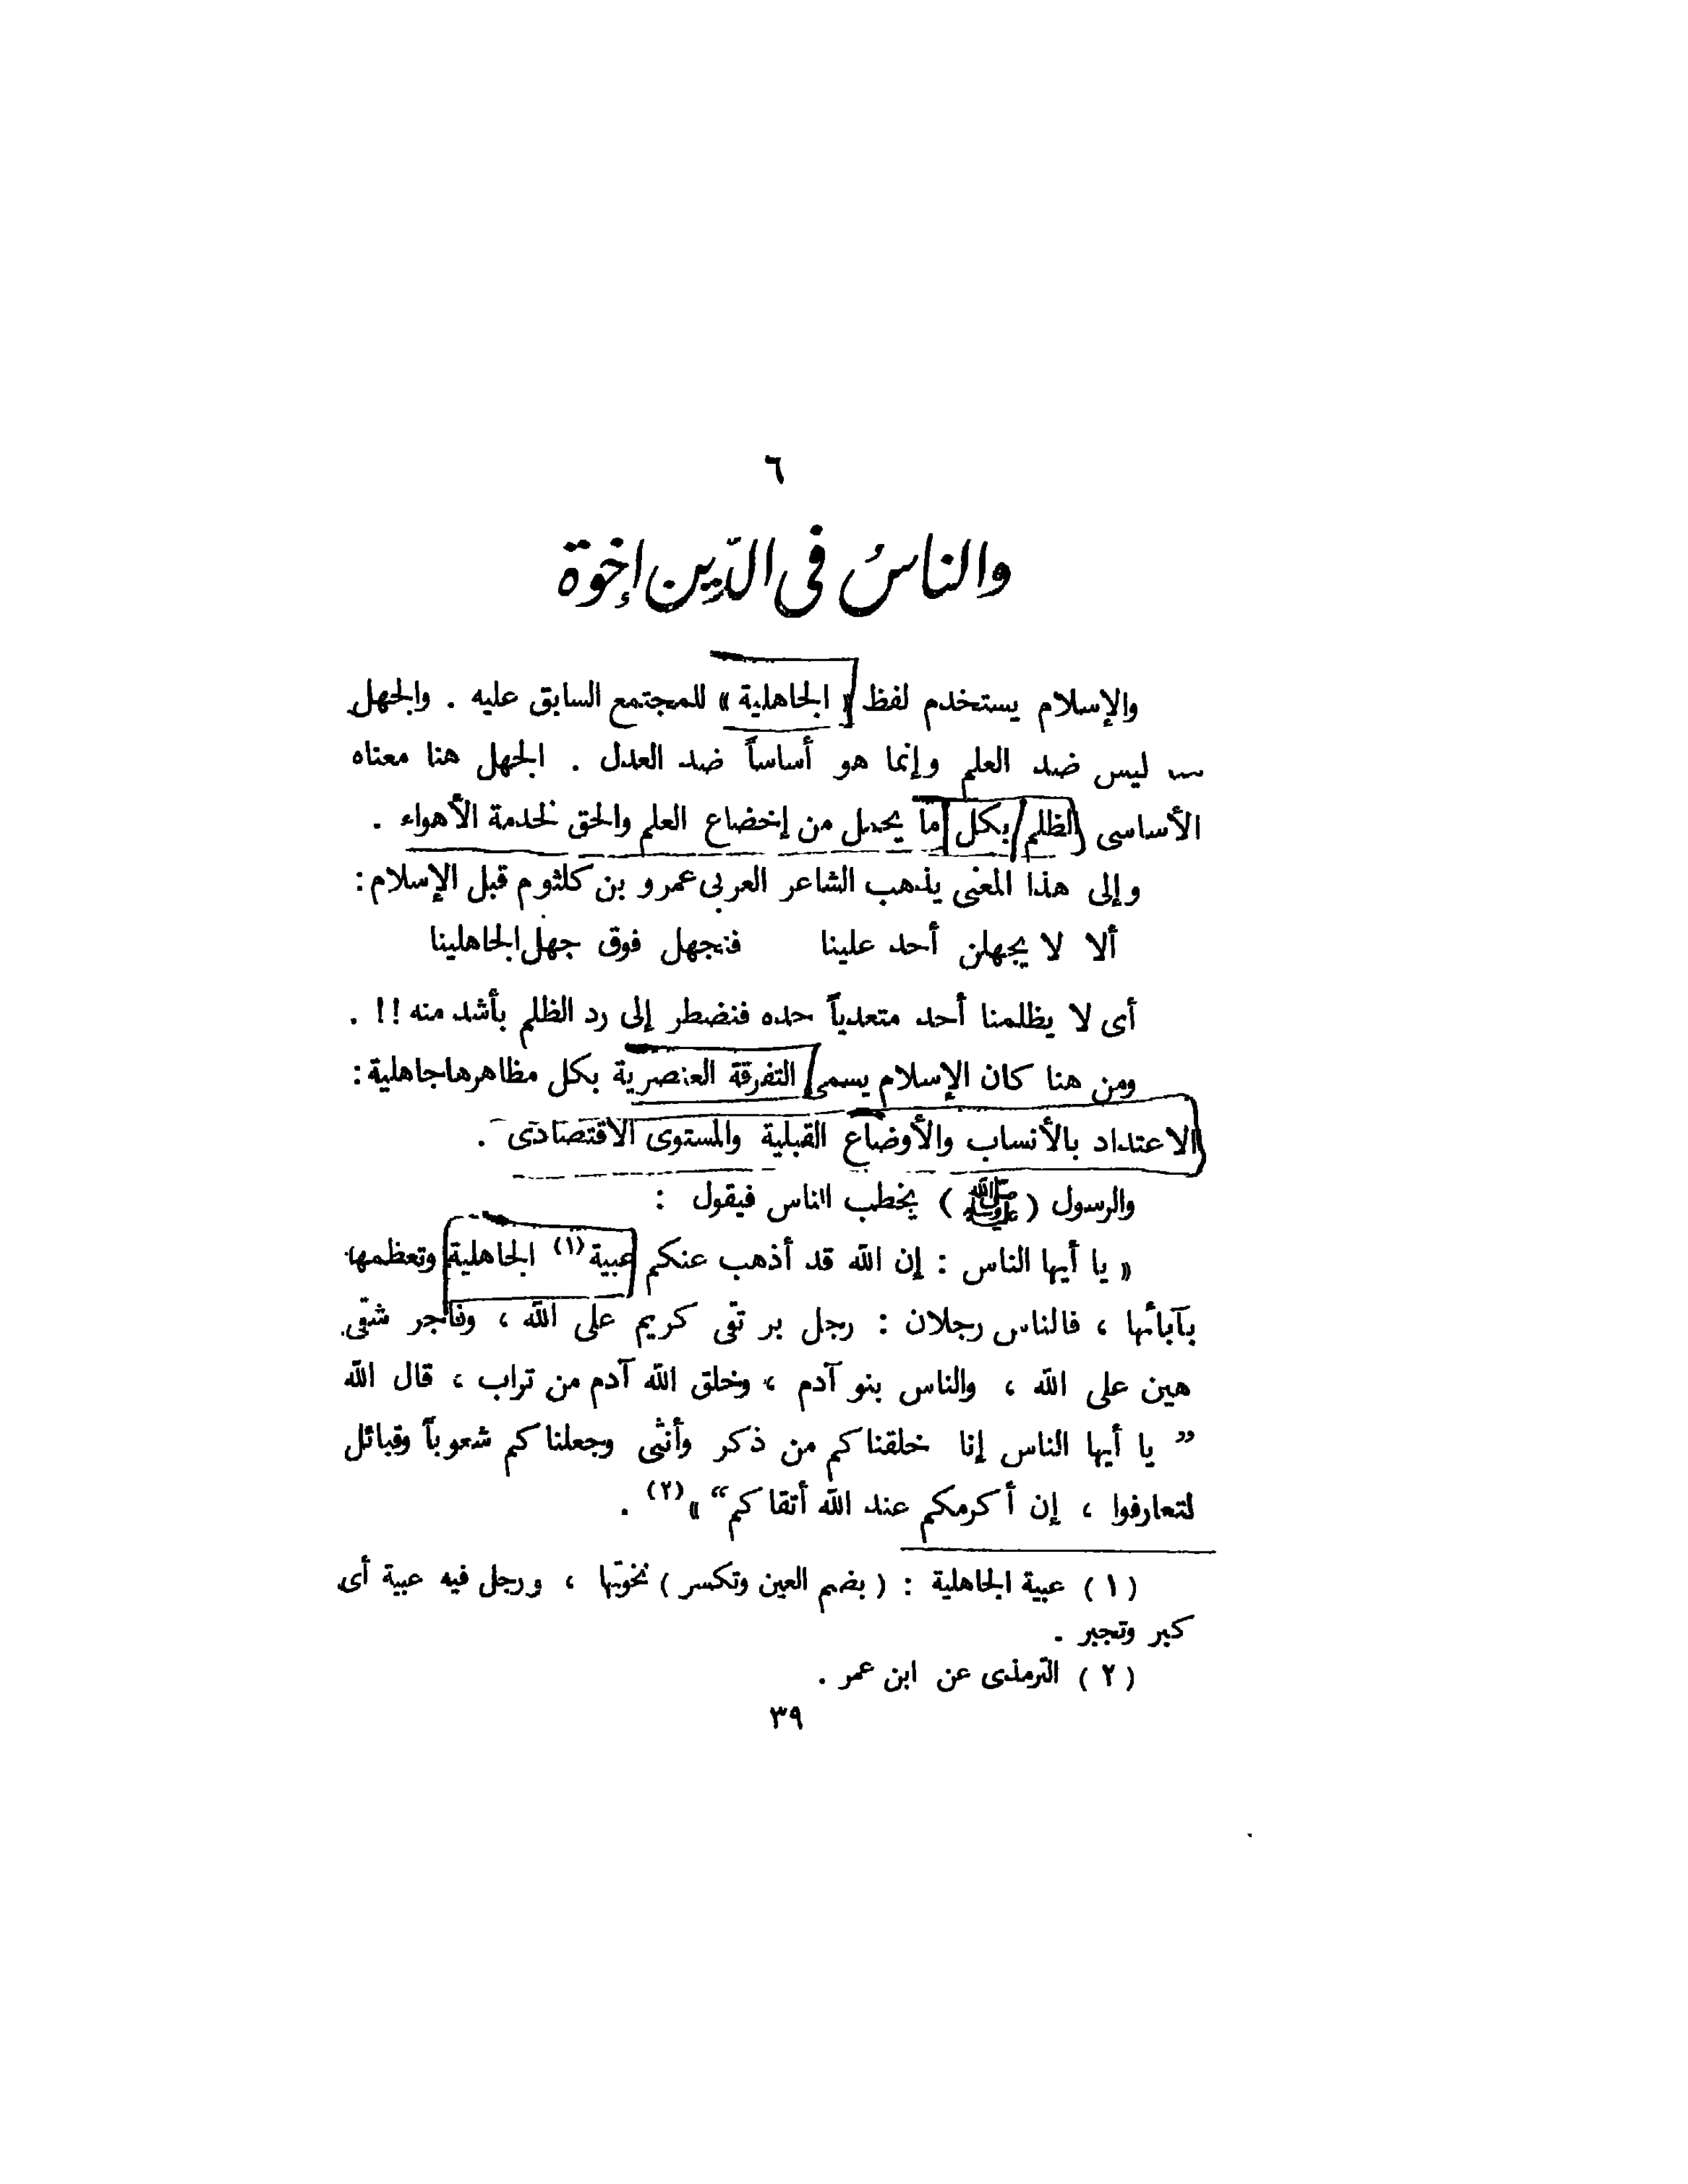 ٦
والناسُ في الدّين إخوة
والإسلام يستخدم لفظ « الجاهلية » للمجتمع السابق عليه . والجهل
ليس ضد العلم وإنما هو أساساً ضد العدل . الجهل هنا معناه
الأساسى الظلم بكل ما يحمل من إخضاع العلم والحق لخدمة الأهواء .
وإلى هذا المعنى يذهب الشاعر العربى عمرو بن كلثوم قبل الإسلام :
ألا لا يجهلن أحد علينا فنجهل فوق جهل الجاهلينا
أى لا يظلمنا أحد متعدياً حده فنضطر إلى رد الظلم بأشد منه !! .
ومن هنا كان الإسلام يسمى التفرقة العنصرية بكل مظاهرها جاهلية :
الاعتداد بالأنساب والأوضاع القبلية والمستوى الاقتصادى .
والرسول ( ﷺ ) يخطب الناس فيقول :
« يا أيها الناس : إن الله قد أذهب عنكم عبية (١) الجاهلية وتعظمها
بآبائها ، فالناس رجلان : رجل بر تقى كريم على الله ، وفاجر شقى
هين على الله ، والناس بنو آدم ، وخلق الله آدم من تراب ، قال الله
” يا أيها الناس إنا خلقناكم من ذكر وأنثى وجعلناكم شعوباً وقبائل
لتعارفوا ، إن أكرمكم عند الله أتقاكم “ » (٢) .
( ١ ) عبية الجاهلية : ( بضم العين وتكسر ) نخوتها ، ورجل فيه عبية أى
كبر وتجبر .
( ٢ ) الترمذى عن ابن عمر .
٣٩